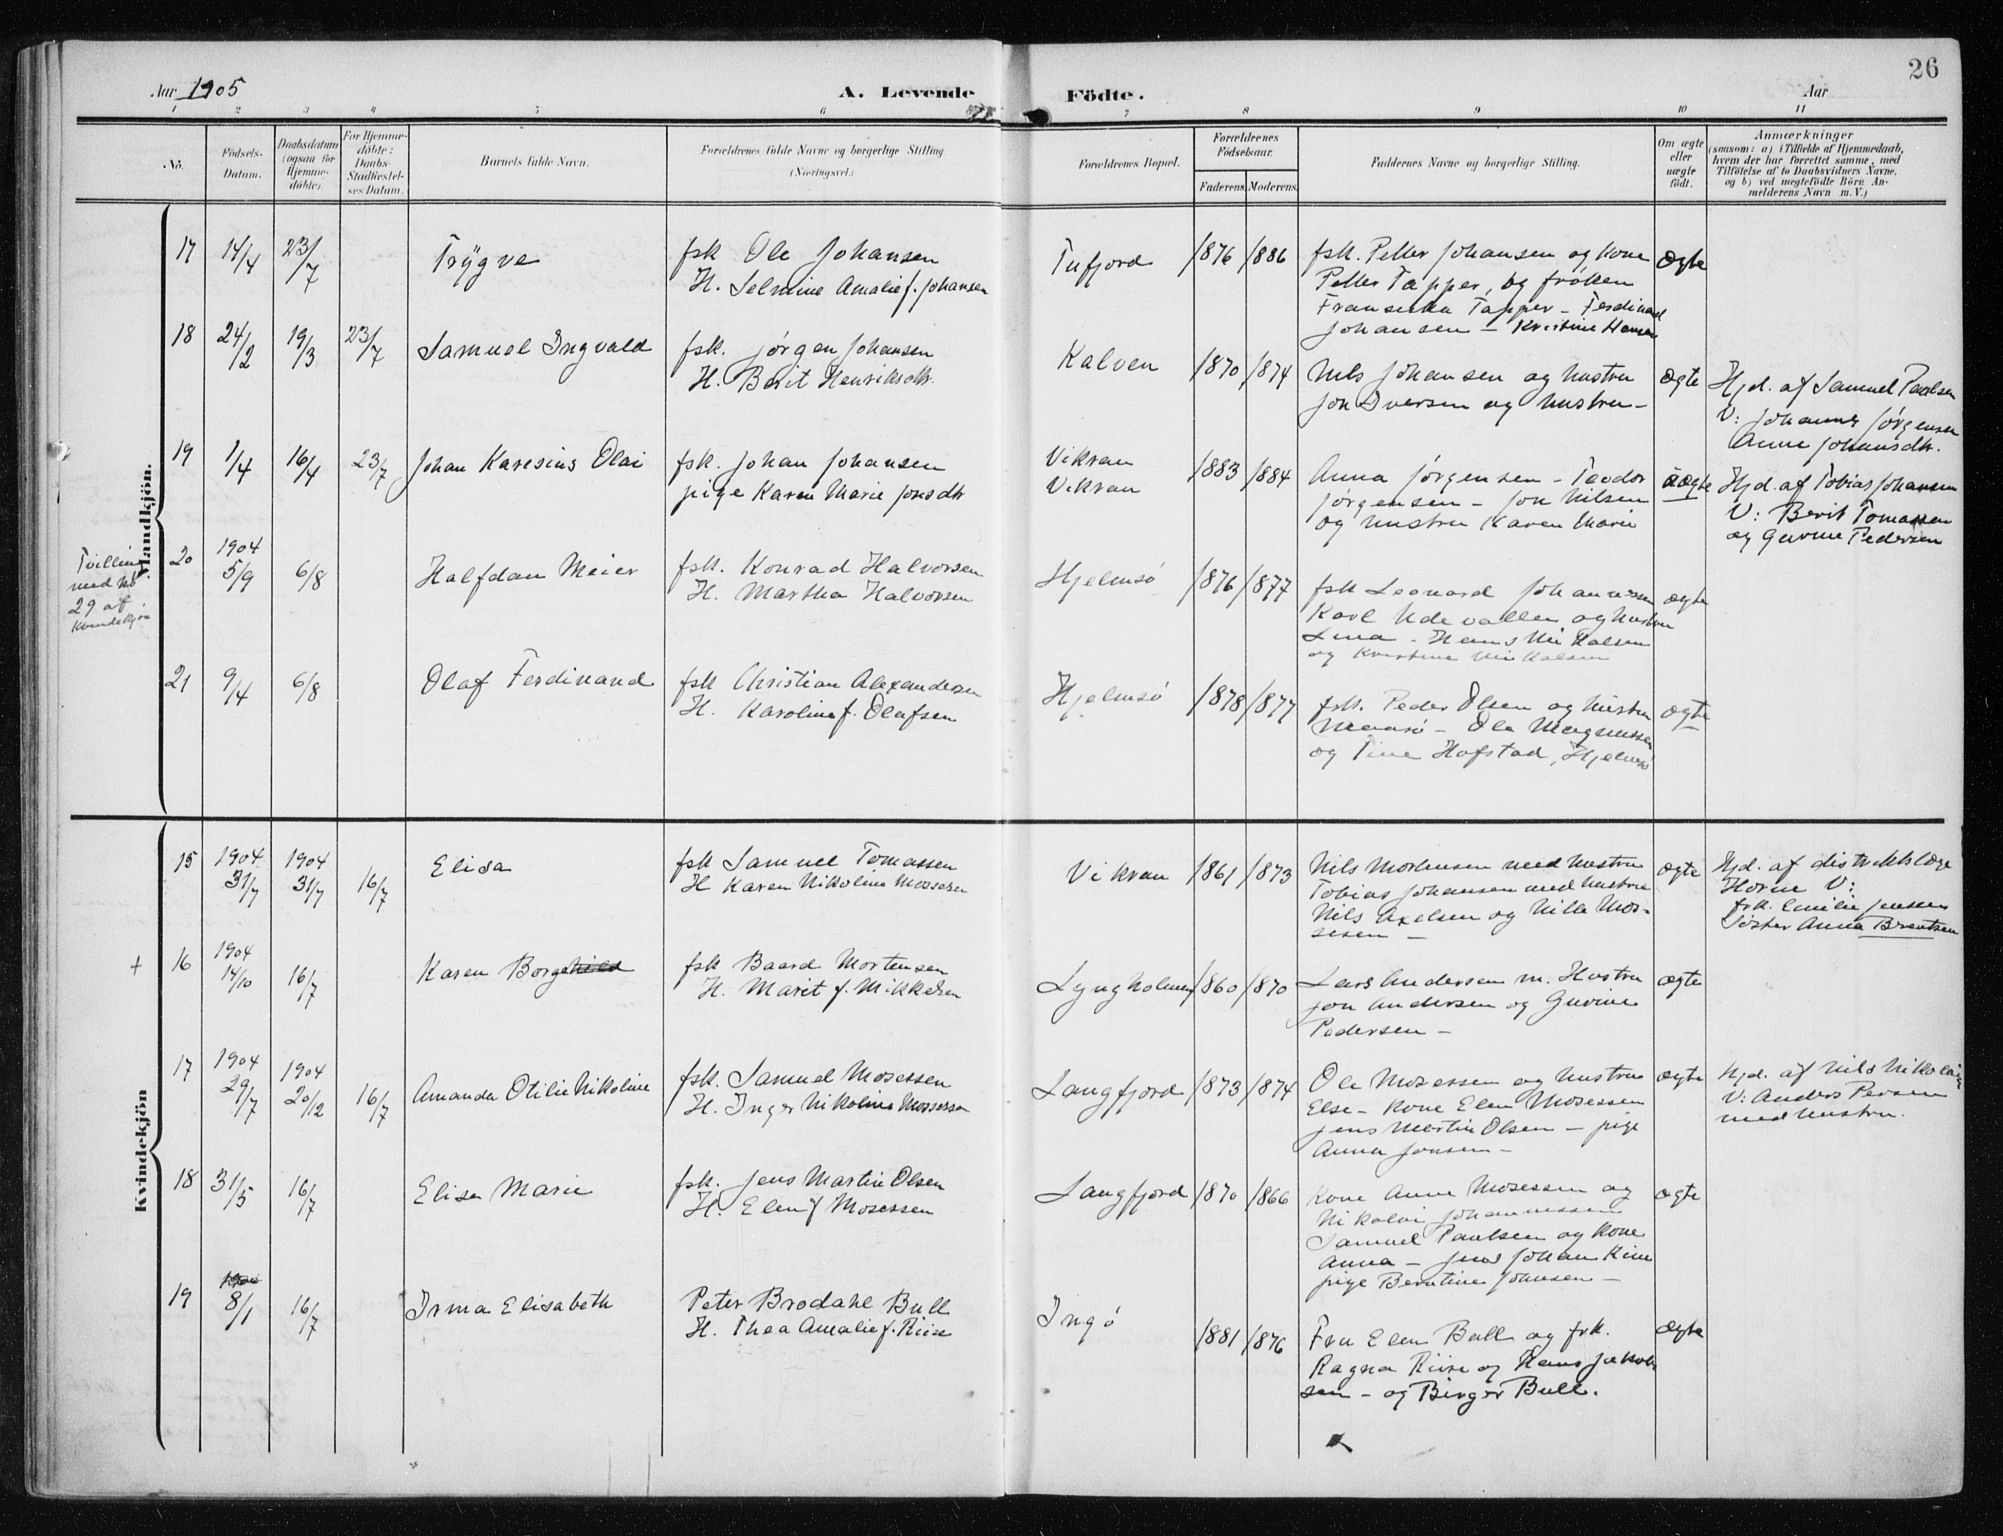 26
Aar 1905
A. Levende Födte.
Aar
1 2 3 4 5 6 7 8 9 10 11
No.
Födsels-Datum.
Daabsdatum (ogsaa for Hjemmedöbte).
For Hjemmedöbte: Daabs-Stadfæstelses Datum.
Barnets fulde Navn.
Forældrenes fulde Navne og borgerlige Stilling. (Næringsvei.)
Forældrenes Bopæl.
Forældrenes Födselsaar.
Faderens. Moderens.
Faddernes Navne og borgerlige Stilling.
Om ægte eller uægte födt.
Anmærkninger (saasom: a) i Tilfælde af Hjemmedaab, hvem der har forrettet samme, med Tilföielse af to Daabsvidners Navne, og b) ved uægtefödte Börn Anmelderens Navn m. V.)
Mandkjön.
17 14/4 23/7 Trygve
fsk Ole Johansen
H. Selmine Amalie f. Johansen
Tufjord 1876 1886
fsk. Petter Johansen og kone
Petter Tapper, og frøken
Fransiska Tapper - Ferdinad
Johansen - Kristine Hansen
ægte
18 24/2 19/3 23/7 Samuel Ingvald
fsk. Jørgen Johansen
H. Berit Henriksdtr.
Kalven 1870 1874
Nils Johansen og hustru
Jon Iversen og hustru -
ægte
Hjd. af Samuel Paulsen
V: Johannes Jørgensen
Anne Johansdtr.
19 1/4 16/4 23/7 Johan Karesius Olai
fsk. Johan Johansen
pige Karen Marie Jonsdtr
Vikran
Vikran
1883 1884
Anna Jørgensen - Teodor
Jørgensen - Jon Nilsen
og hustru Karen Marie
uægte
Hjd. af Tobias Johansen
V: Berit Tomassen
og Gurine Pedersen
Tvilling
med No
29 af
Kvindekjøn
20 1904 5/9 6/8 Halfdan Meier
fsk. Konrad Halvorsen
H. Martha Halvorsen
Hjelmsö 1876 1877
fsk Leonard Johannessen
Karl Udevallen og hustru
Lina. Hans Mikkalsen
og Kristine Mikkalsen
ægte
21 9/4 6/8 Olaf Ferdinand
fsk Christian Alexandersen
H. Karoline f. Olafsen
Hjelmsö 1878 1877
fsk. Peder Olsen og hustru
Maasö - Ole Magnussen
og Tine Hofstad, Hjelmsö
ægte
Kvindekjön
15 1904 31/7 1904 31/7 16/7 Elisa
fsk Samuel Tomassen
H Karen Nikoline Mossesen
Vikran 1861 1873
Nils Mortensen med hustru
Tobias Johansen med hustru
Nils Axelsen og Nille Mos-
sesen -
ægte
Hjd. af distriktslæge
Horne V:
frk. Emilie Jensen
Söster Anna Brentsen
+ 16 1904 14/10 16/7 Karen Borgehild
fsk Baard Mortensen
H. Marit f. Mikkelsen
Lyngholmen 1860 1870
Lars Andersen m. Hustru
Jon Andersen og Gurine
Pedersen -
ægte
17 1904 29/7 1904 20/12 16/7 Amanda Otilie Nikoline
fsk. Samuel Mosessen
H. Inger Nikoline Mossesen
Langfjord 1873 1874
Ole Mosessen og hustru
Else - kone Elen Mosessen
Jens Martin Olsen - pige
Anna Jonsen -
ægte
Hjd. af Nils Nikolaisen
V: Anders Persen
med hustru.
18 31/5 16/7 Elise Marie
fsk. Jens Martin Olsen
H. Elen f Mosessen
Langfjord 1870 1866
Kone Anne Mosessen og
Nikolai Johannessen
Samuel Paulsen og kone
Anna - Jens Johan Kine
pige Berntine Johnsen -
ægte
19 8/1 16/7 Irma Elisabeth
Peter Brodahl Bull
H. Thea Amalie f. Riise
Ingö 1881 1876
Fru Elen Bull og frk.
Ragna Riise og Hans Jakob-
sen - og Birger Bull.
ægte